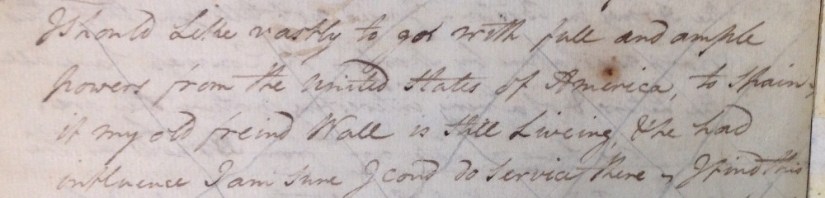 I should Like vastly to go with full and ample
powers from the United States of America, to Spain,
if my old freind Wall is still Liveing, & he had
influence I am sure I coud do Service there - I find this